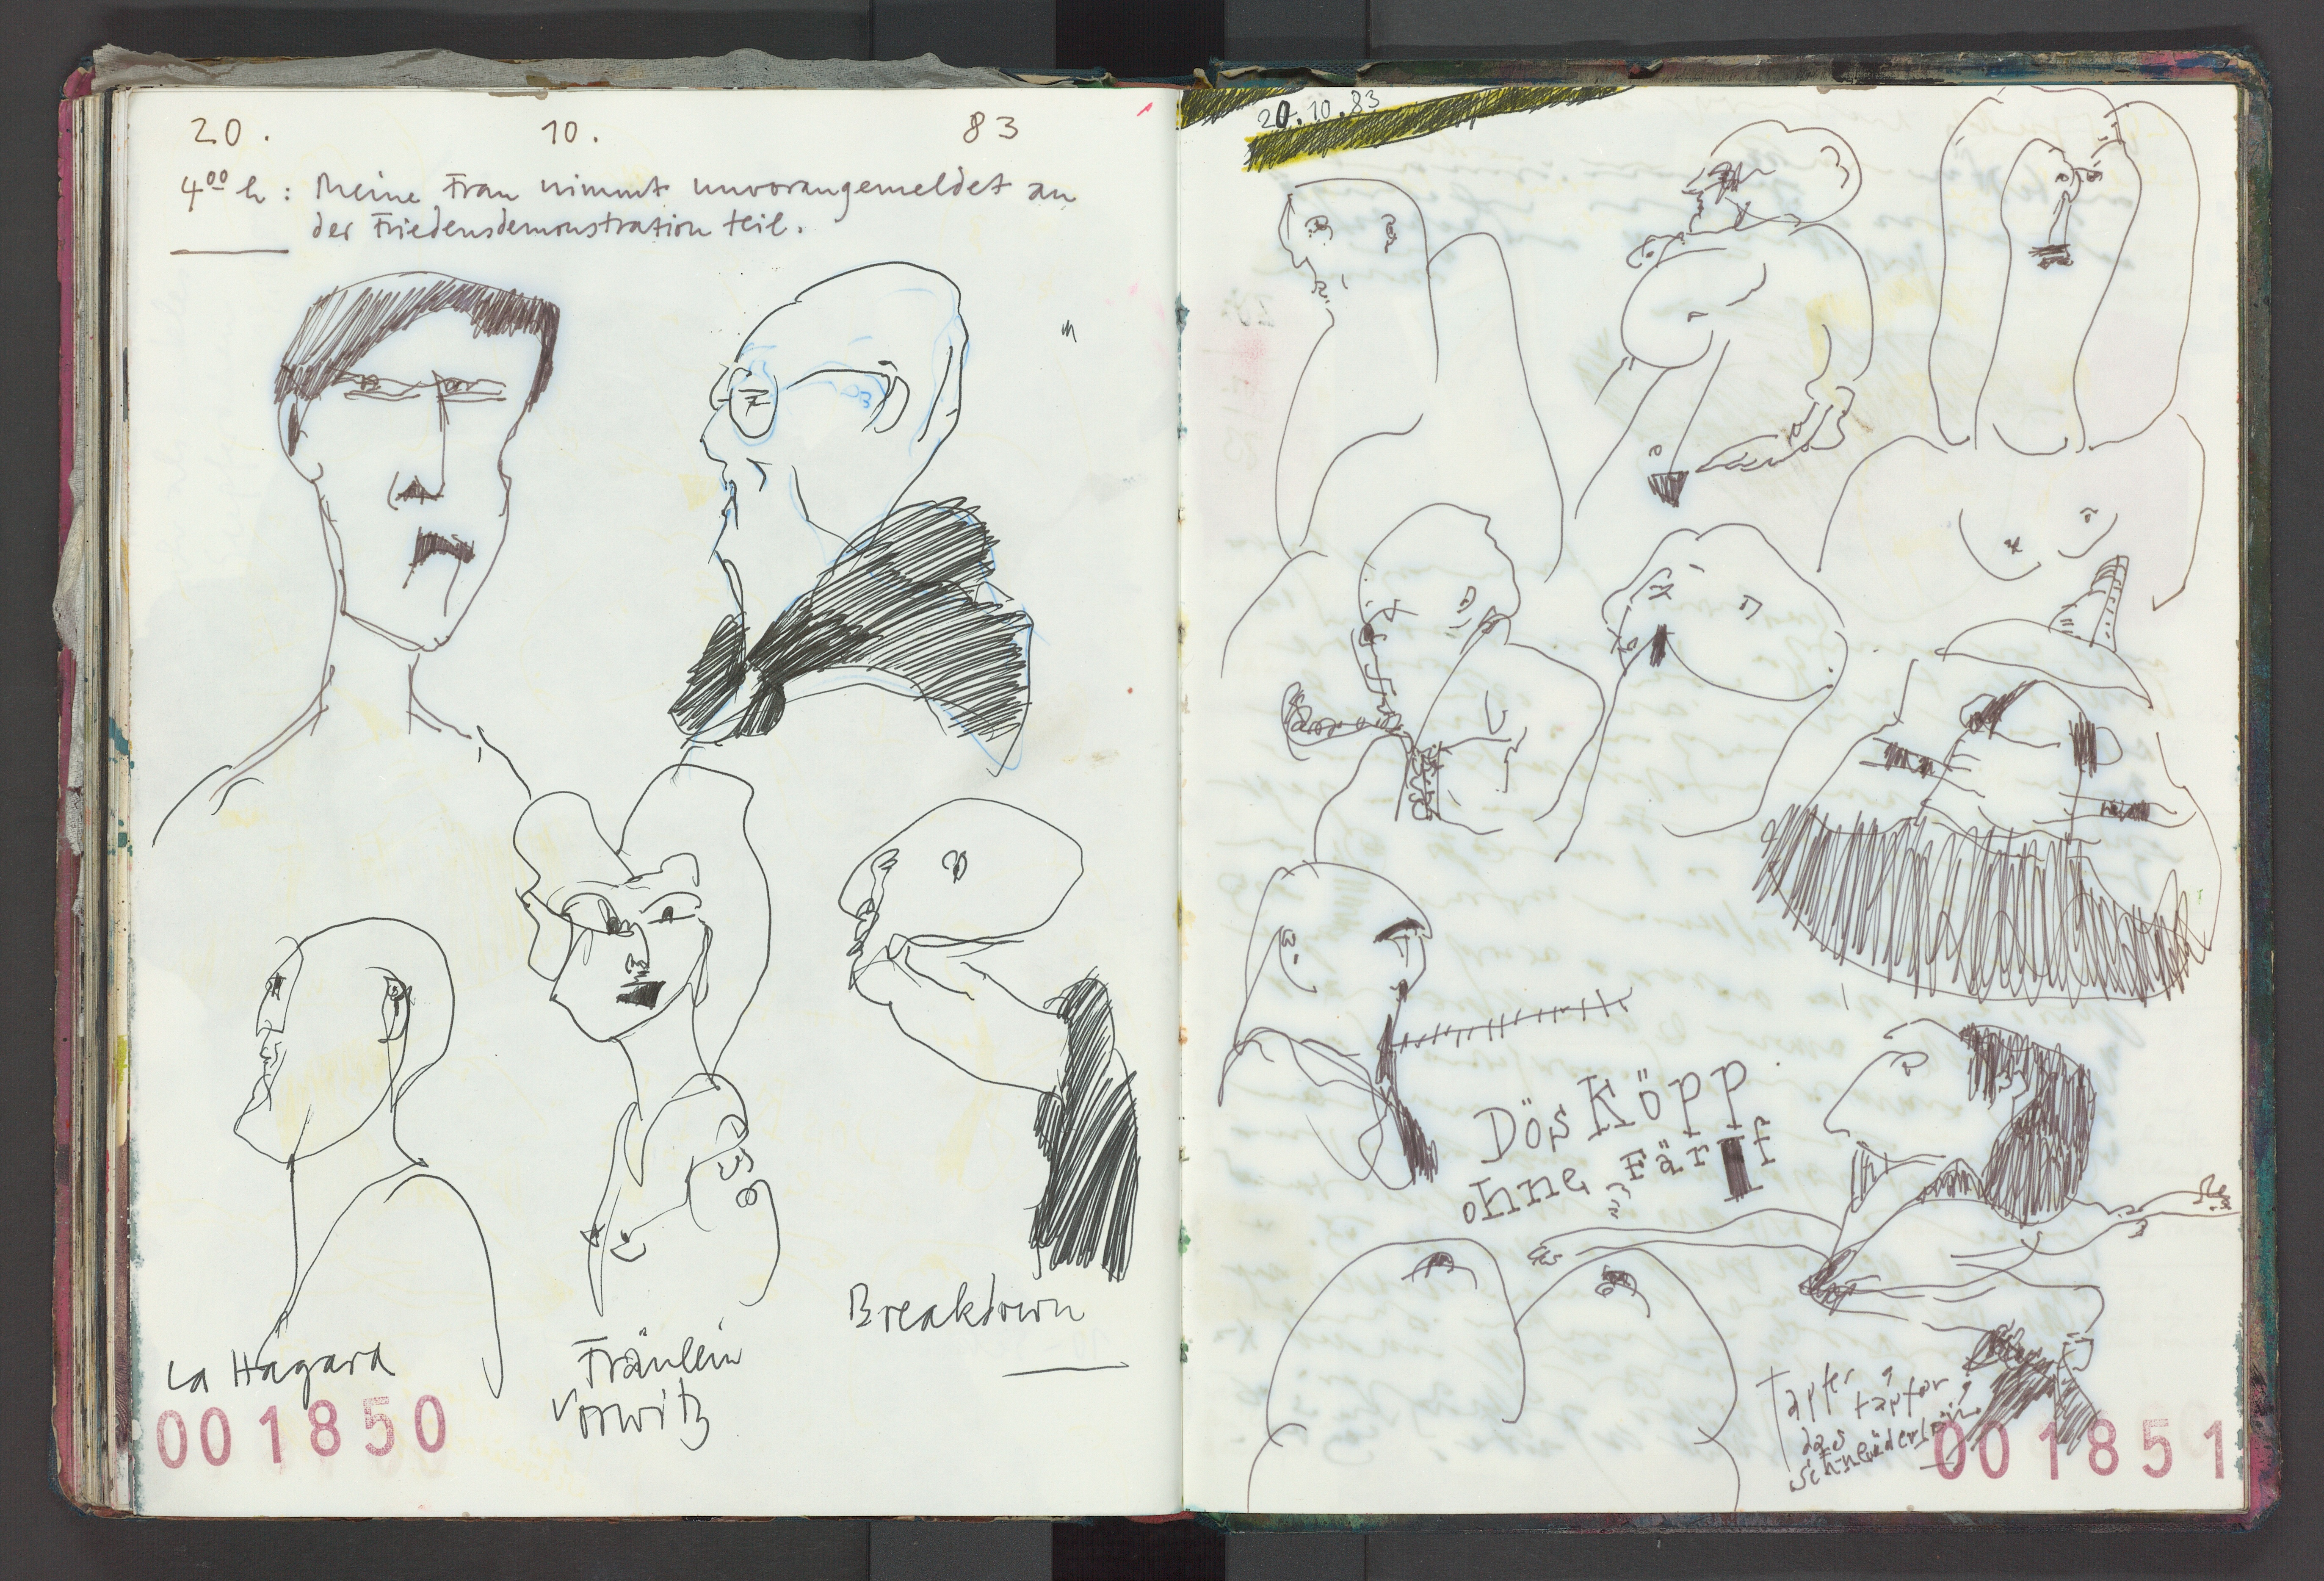 20. 10. 83
4⁰⁰ h: Meine Frau nimmt unvorangemeldet an
der Friedensdemonstration teil.
La Hagard
Fräulein
Vorwitz
Breakdown
001850
20.10.83
Dös Köpp
ohne Färf
Tapfer,
tapfer,
das
Schneiderlein
001851